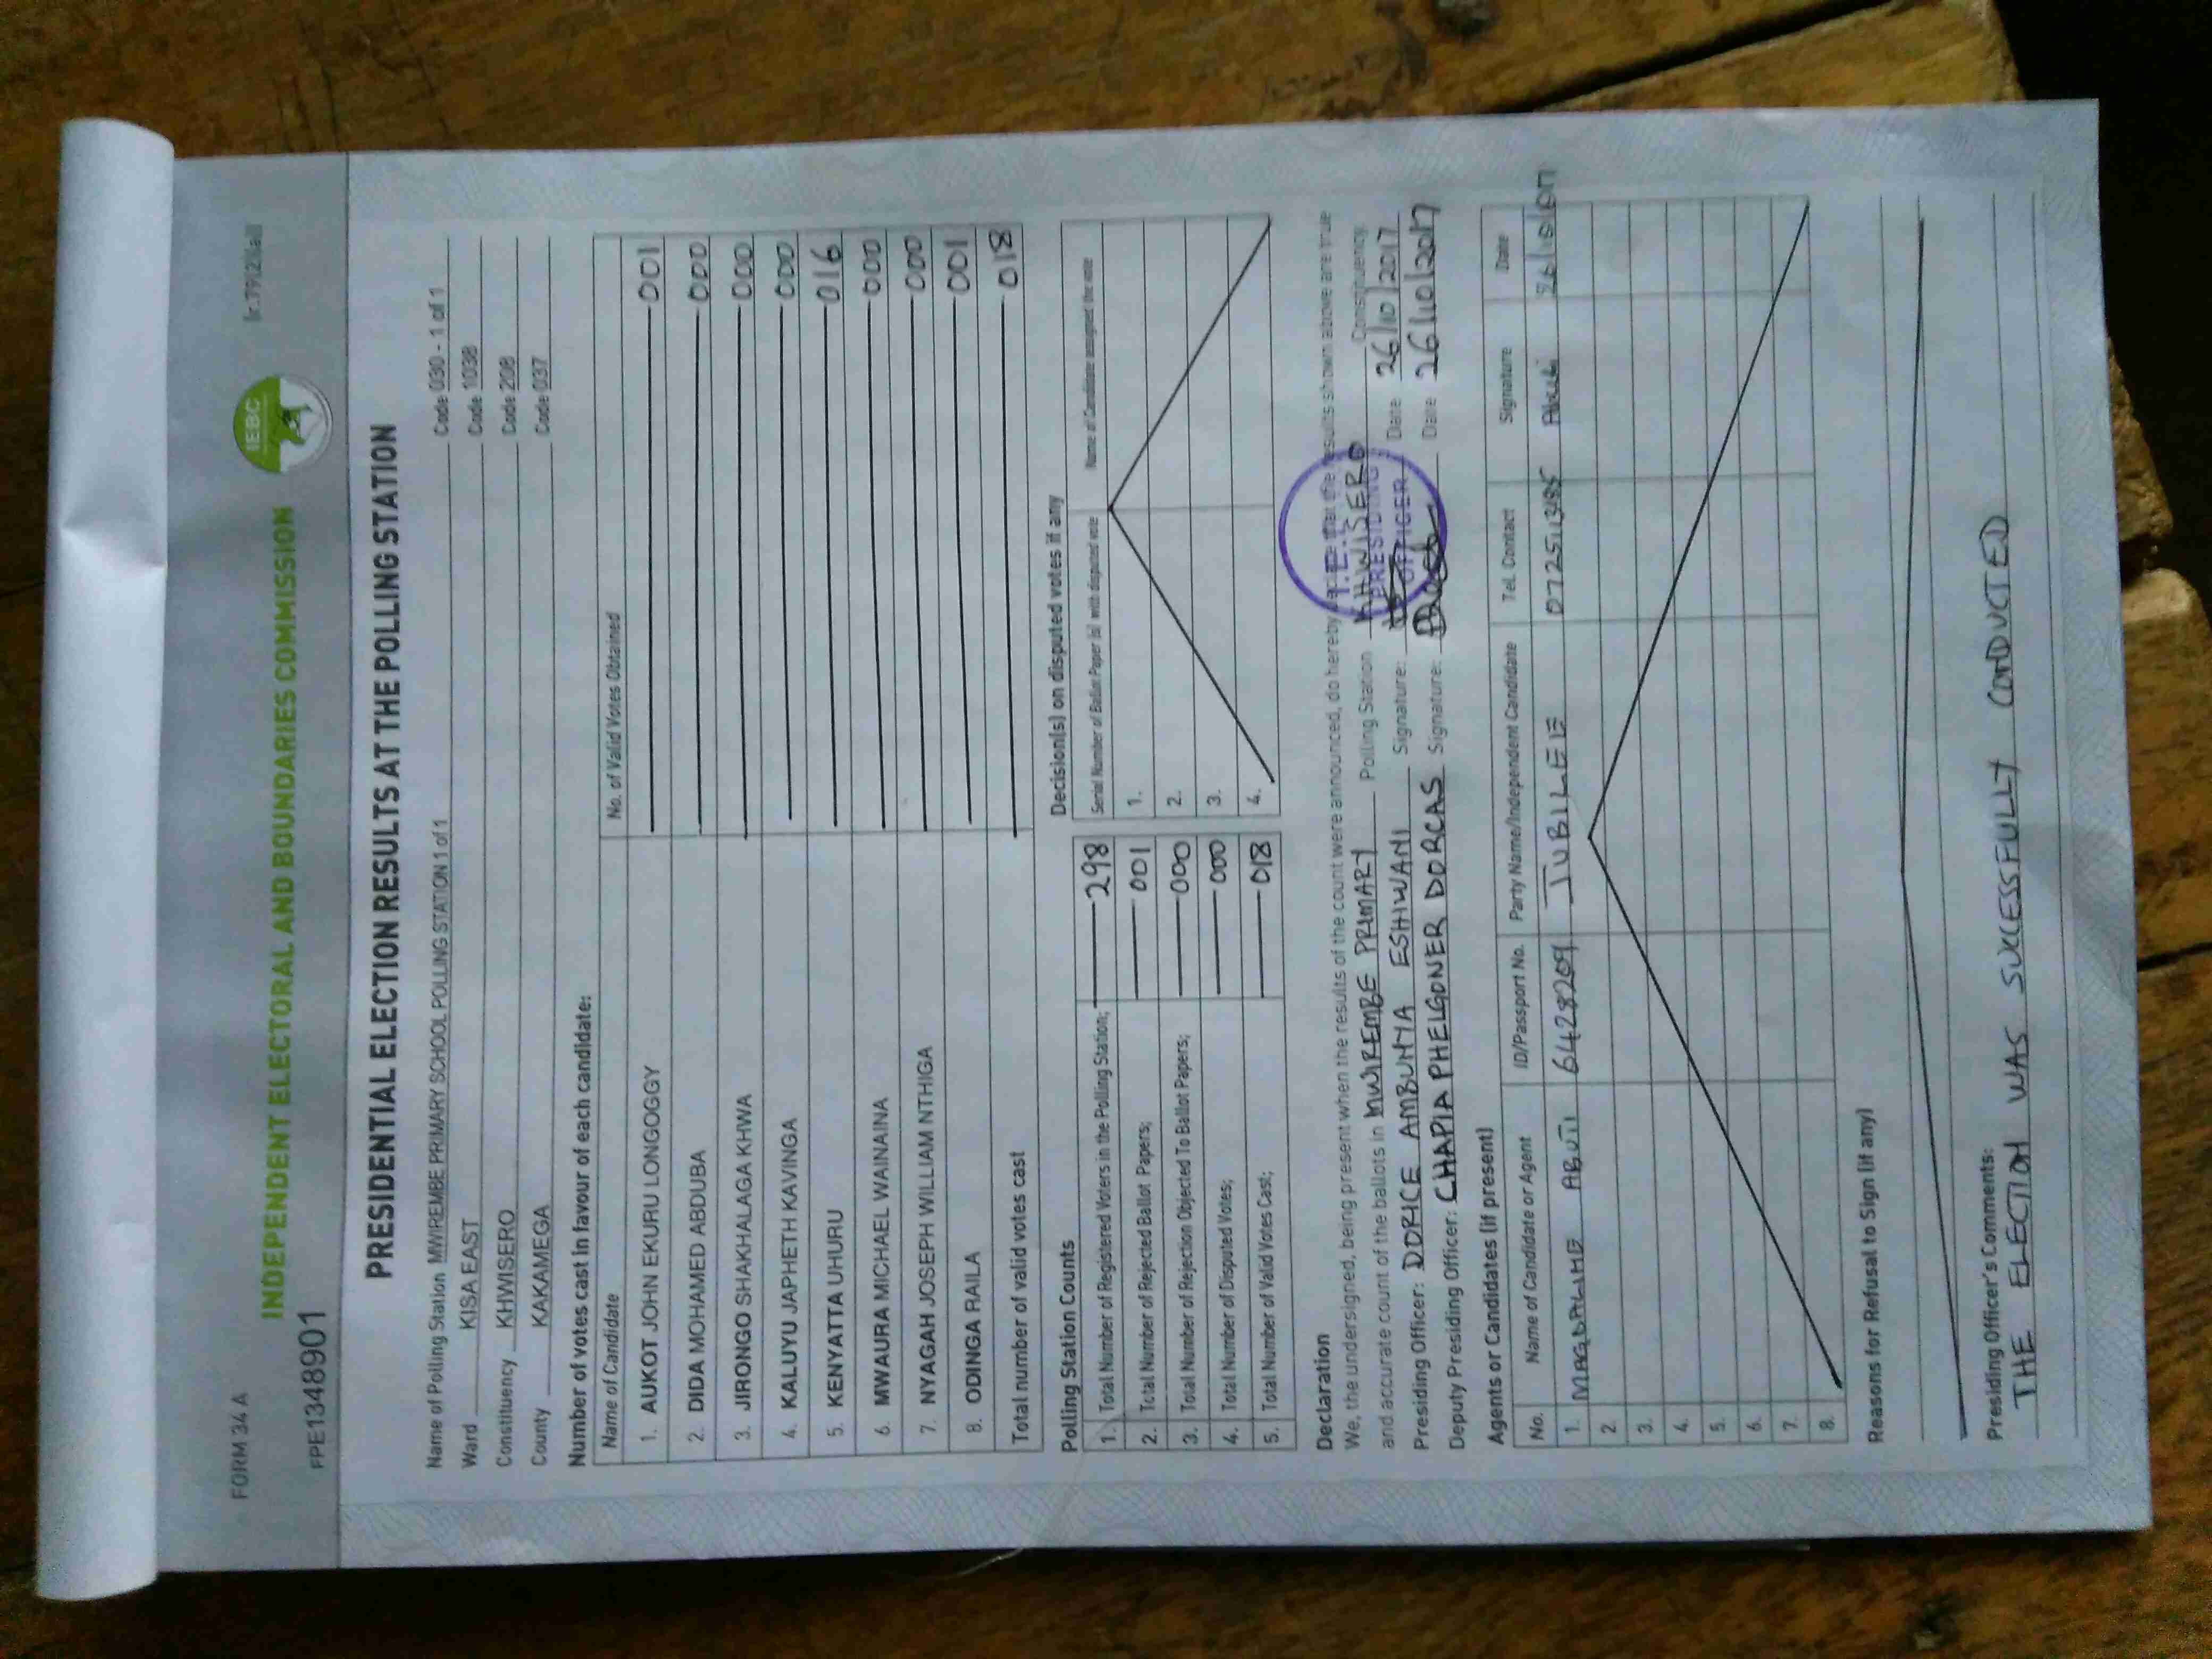 FORM 34 A
[r.79(2)(a)]
INDEPENDENT ELECTORAL AND BOUNDARIES COMMISSION
IEBC
FPE1348901
PRESIDENTIAL ELECTION RESULTS AT THE POLLING STATION
Name of Polling Station MWIREMBE PRIMARY SCHOOL POLLING STATION 1 of 1 Code 030 - 1 of 1
Ward KISA EAST Code 1038
Constituency KHWISERO Code 208
County KAKAMEGA Code 037
Number of votes cast in favour of each candidate:
Name of Candidate No. of Valid Votes Obtained
1. AUKOT JOHN EKURU LONGOGGY 001
2. DIDA MOHAMED ABDUBA 000
3. JIRONGO SHAKHALAGA KHWA 000
4. KALUYU JAPHETH KAVINGA 000
5. KENYATTA UHURU 016
6. MWAURA MICHAEL WAINAINA 000
7. NYAGAH JOSEPH WILLIAM NTHIGA 000
8. ODINGA RAILA 001
Total number of valid votes cast 018
Polling Station Counts
1. Total Number of Registered Voters in the Polling Station; 298
2. Total Number of Rejected Ballot Papers; 001
3. Total Number of Rejection Objected To Ballot Papers; 000
4. Total Number of Disputed Votes; 000
5. Total Number of Valid Votes Cast; 018
Decision(s) on disputed votes if any
Serial Number of Ballot Paper (s) with disputed vote Name of Candidate assigned the vote
1.
2.
3.
4.
Declaration
We, the undersigned, being present when the results of the count were announced, do hereby declare that the results shown above are true
and accurate count of the ballots in MWIREMBE PRIMARY Polling Station KHWISERO Constituency.
Presiding Officer: DORICE AMBUNYA ESHIWANI Signature: Date 26/10/2017
Deputy Presiding Officer: CHAPIA PHELGONER DORCAS Signature: Date 26/10/2017
I.E.B.C
PRESIDING
OFFICER
Agents or Candidates (if present)
No. Name of Candidate or Agent ID/Passport No. Party Name/Independent Candidate Tel. Contact Signature Date
1. MAGDALINE ABUTI 6428209 JUBILEE 0725113485 Abuti 26/10/2017
2.
3.
4.
5.
6.
7.
8.
Reasons for Refusal to Sign (if any)
Presiding Officer's Comments:
THE ELECTION WAS SUCCESSFULLY CONDUCTED